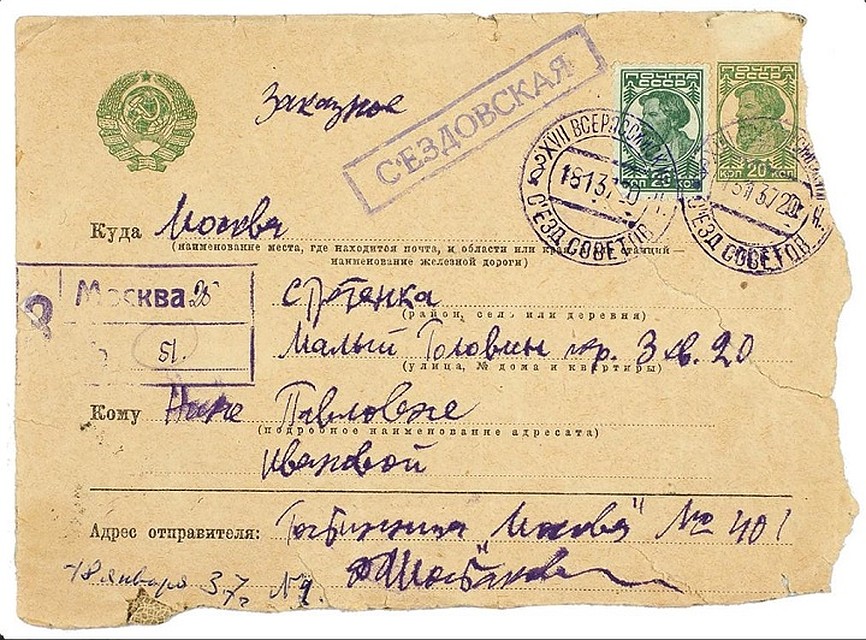 Заказное
С'ЕЗДОВСКАЯ
ПОЧТА СССР
20 КОП
ПОЧТА СССР
КОП 20 КОП
XVII ВСЕРОССИЙСКИЙ С'ЕЗД СОВЕТОВ
18 1 37 20
С'ЕЗД СОВЕТОВ
Куда Москва
(наименование места, где находится почта, и области или края, а для станций—
наименование железной дороги)
Москва 25
51.
Сретенка
(район, село или деревня)
Малый Головин пер. 3 кв. 20
(улица, № дома и квартиры)
Кому Нине Павловне
(подробное наименование адресата)
Ивановой
Адрес отправителя: Гостиница "Москва" № 401
18 января 37 г.